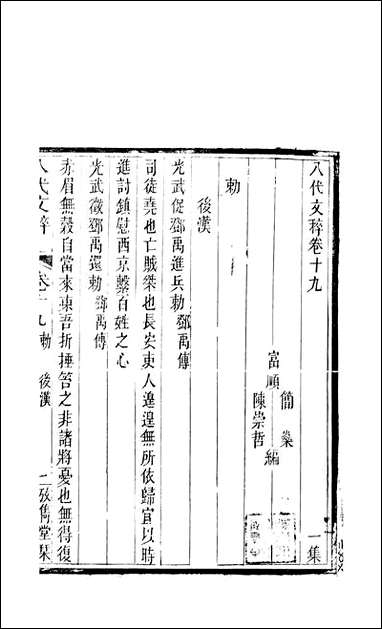 八代文粹卷十九
一集
富順
簡燊
陳崇哲
編
勅
後漢
光武促鄧禹進兵勅 鄧禹傳
司徒堯也亡賊桀也長安吏人遑遑無所依歸宜以時
進討鎮慰西京繫百姓之心
光武徵鄧禹還勅 鄧禹傳
赤眉無穀自當來東吾折捶笞之非諸將憂也無得復
八代文粹 卷十九 勅 後漢 二 攷雋堂栞